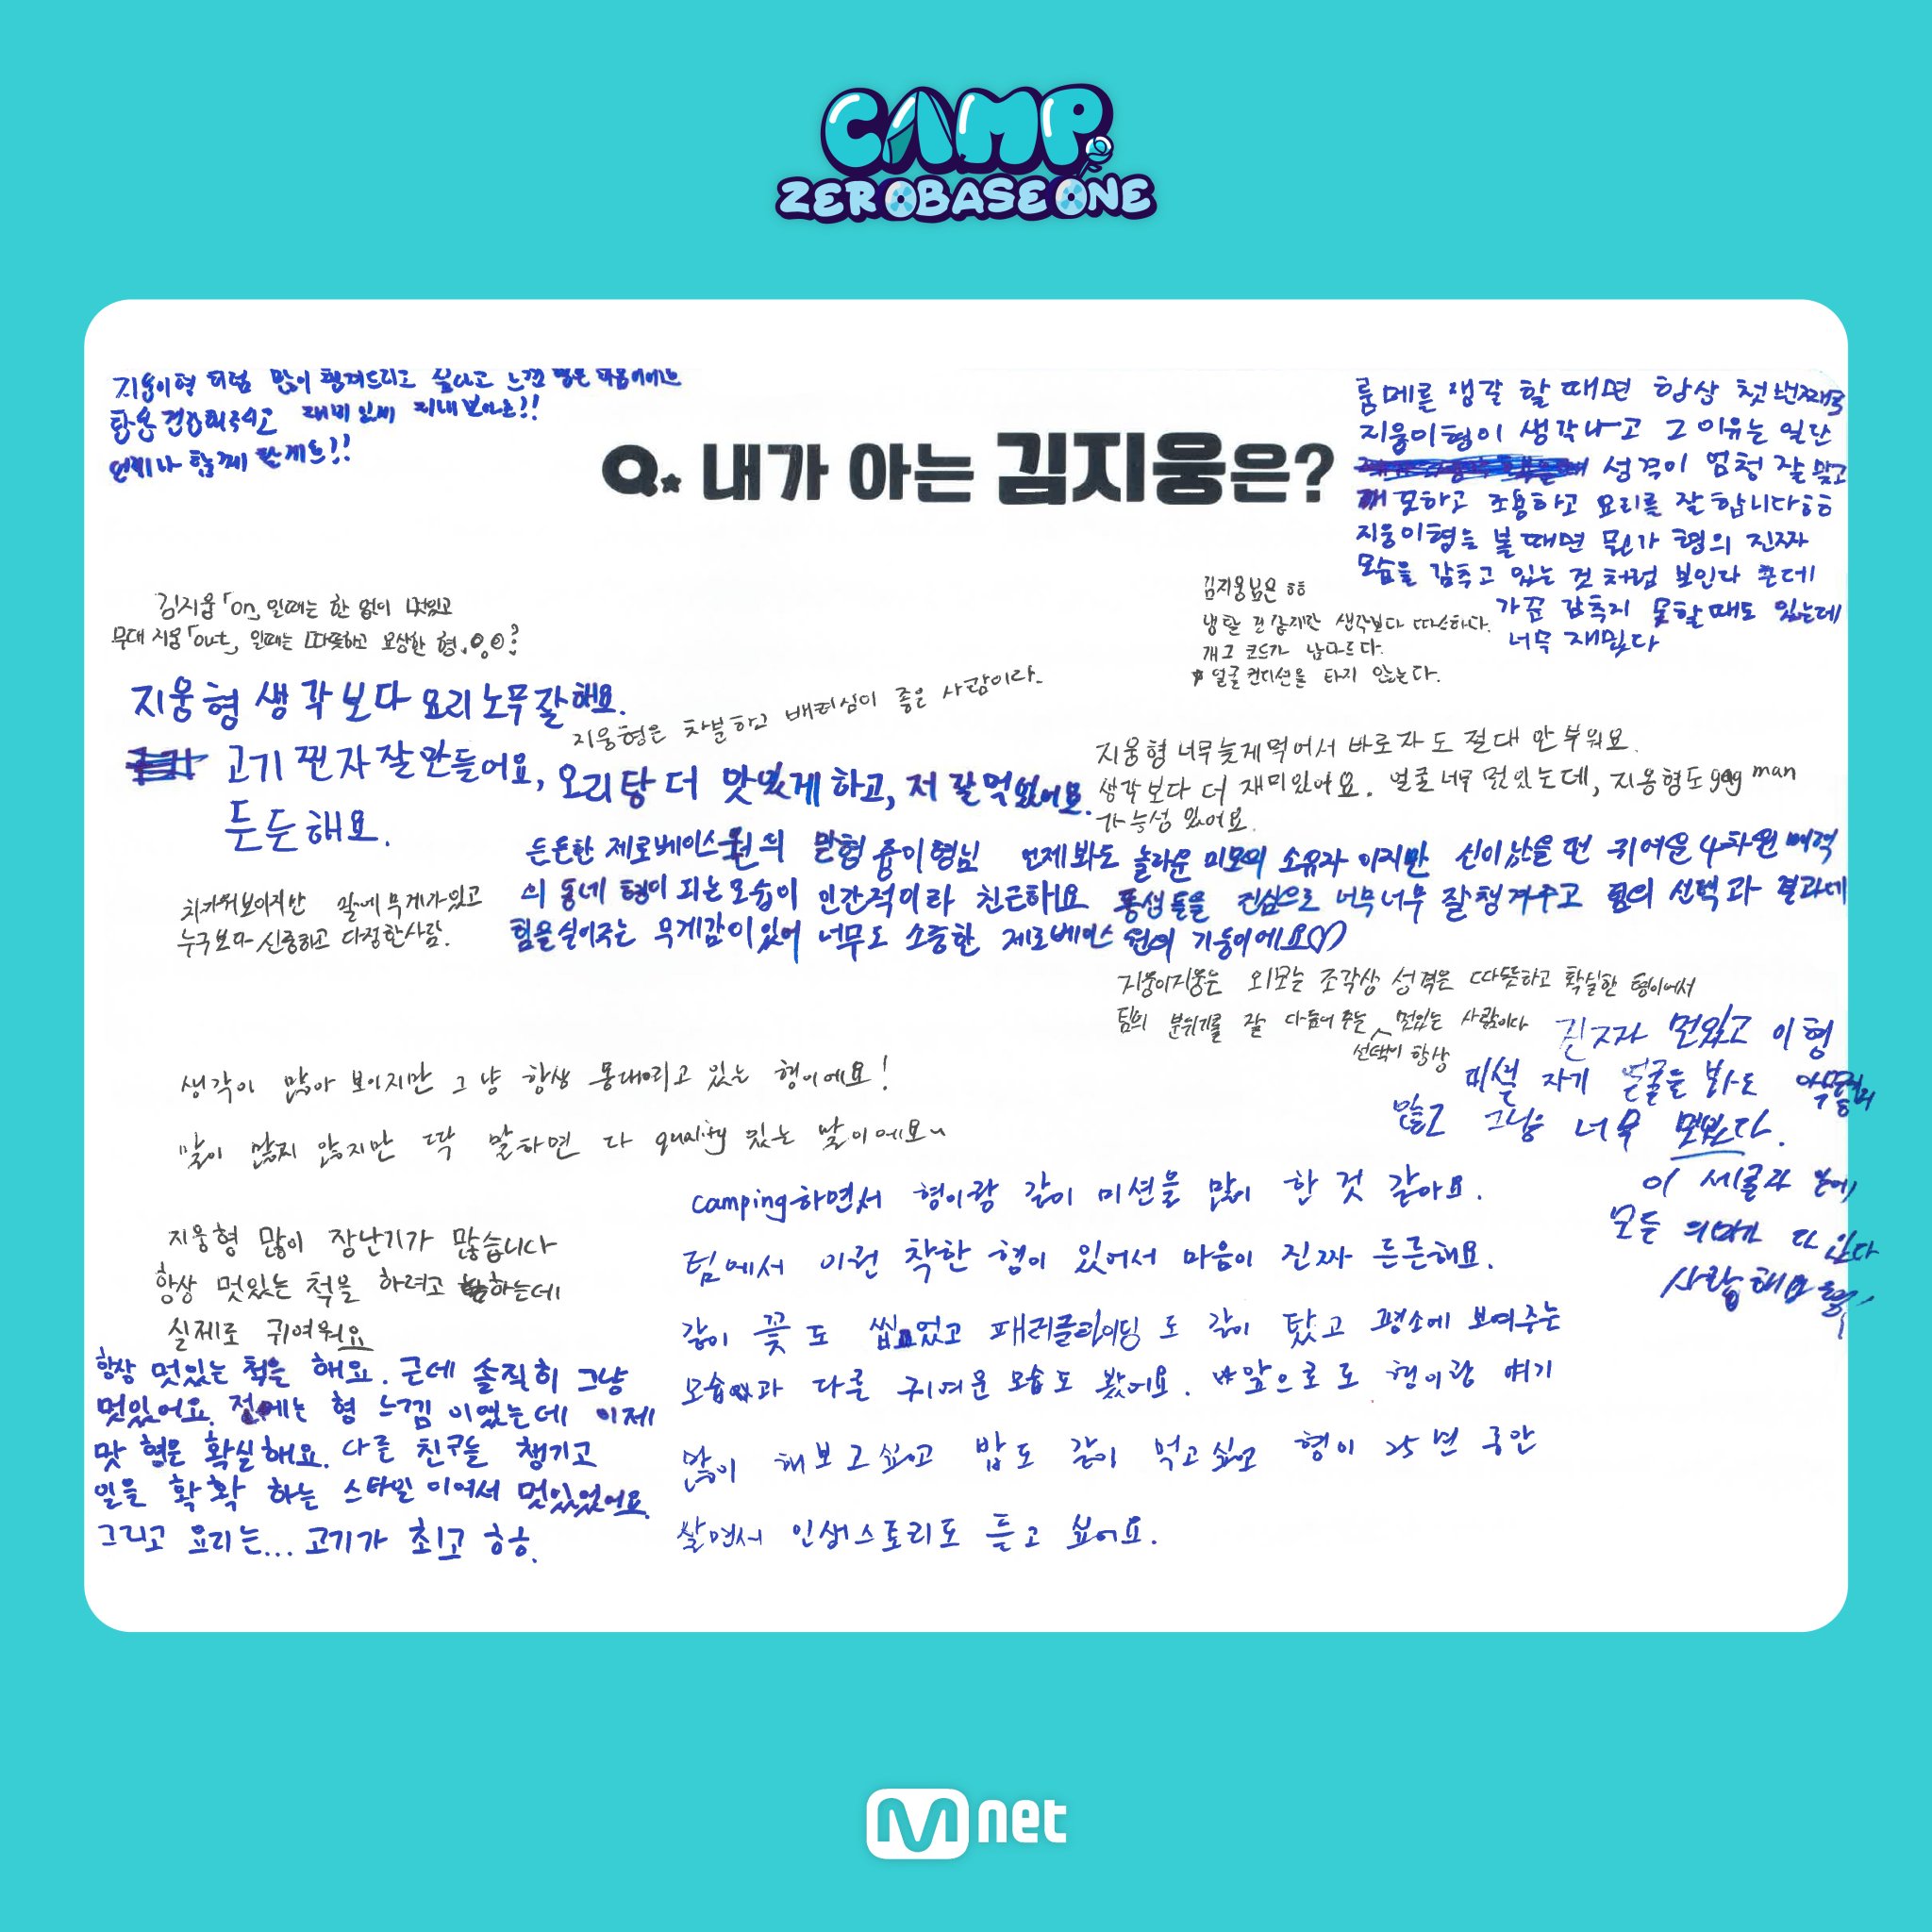 CAMP
ZEROBASEONE
Q. 내가 아는 김지웅은?
지웅이형 처럼 많이 챙겨드리고 싶다고 느낀
항상 재미있게
언제나 함께 할게요!!
룸메를 생각 할 때면 항상 첫번째로
지웅이형이 생각나고 그 이유는 일단
성격이 엄청 잘 맞고
조용하고 요리를 잘 합니다ㅎㅎ
지웅이형을 볼때면 뭔가 형의 진짜
모습을 감추고 있는 것 처럼 보인다 근데
가끔 감추지 못할때도 있는데
너무 재밌다
김지웅「on」일때는 한 없이 멋있고
무대 지웅「out」일때는 따뜻하고 자상한 형
김지웅님은 ㅎㅎ
생각보다 따스하다.
개그 코드가 남다르다.
얼굴 컨디션을 타지 않는다.
지웅형 생각보다 요리 노무 잘해요.
고기 찐자 잘 만들어요,
든든해요.
지웅형은 차분하고 배려심이 좋은 사람이라
오리탕 더 맛있게 하고, 저 잘 먹었어요.
지웅형 너무 늦게 먹어서 바로 자도 절대 안 부워요.
생각보다 더 재미있어요. 얼굴 너무 멋있는데, 지웅형도 gag man
가능성 있어요.
든든한 제로베이스원의 맏형 쥼이형님 언제봐도 놀라운 미모의 소유자 이지만 신이 났을 땐 귀여운 4차원 매력
의 동네 형이 되는 모습이 인간적이라 친근해요 동생들을 진심으로 너무너무 잘챙겨주고 형의 선택과 결과에
힘을 실어주는 무게감이 있어 너무도 소중한 제로베이스원의 기둥이에요♡
차가워보이지만 말에 무게가 있고
누구보다 신중하고 다정한 사람.
지웅이지웅은 외모는 조각상 성격은 따뜻하고 확실한 형이어서
팀의 분위기를 잘 다듬어 주는 멋있는 사람이다
선택이 항상
진짜 멋있고 이형
미셀 자기 얼굴을 봐도
않고 그냥 너무 멋있다.
이 세글자 안에
모든 의미가 다 있다
사랑해요 형!
생각이 많아 보이지만 그냥 항상 멍때리고 있는 형이에요!
말이 많지 않지만 딱 말하면 다 quality 있는 말이에요~
지웅형 많이 장난기가 많습니다
항상 멋있는 척을 하려고 하는데
실제로 귀여워요
항상 멋있는 척을 해요. 근데 솔직히 그냥
멋있어요. 전에는 형 느낌 이었는데 이제
맏형은 확실해요. 다른 친구들 챙기고
일을 확확 하는 스타일 이어서 멋있었어요.
그리고 요리는... 고기가 최고 ㅎㅎ.
camping하면서 형이랑 같이 미션을 많이 한 것 같아요.
팀에서 이런 착한 형이 있어서 마음이 진짜 든든해요.
같이 꽃도 씹었고 패러글라이딩도 같이 탔고 평소에 보여주는
모습과 다른 귀여운 모습도 봤어요. 앞으로도 형이랑 얘기
많이 해보고싶고 밥도 같이 먹고싶고 형이 25년 동안
살면서 인생스토리도 듣고 싶어요.
Mnet